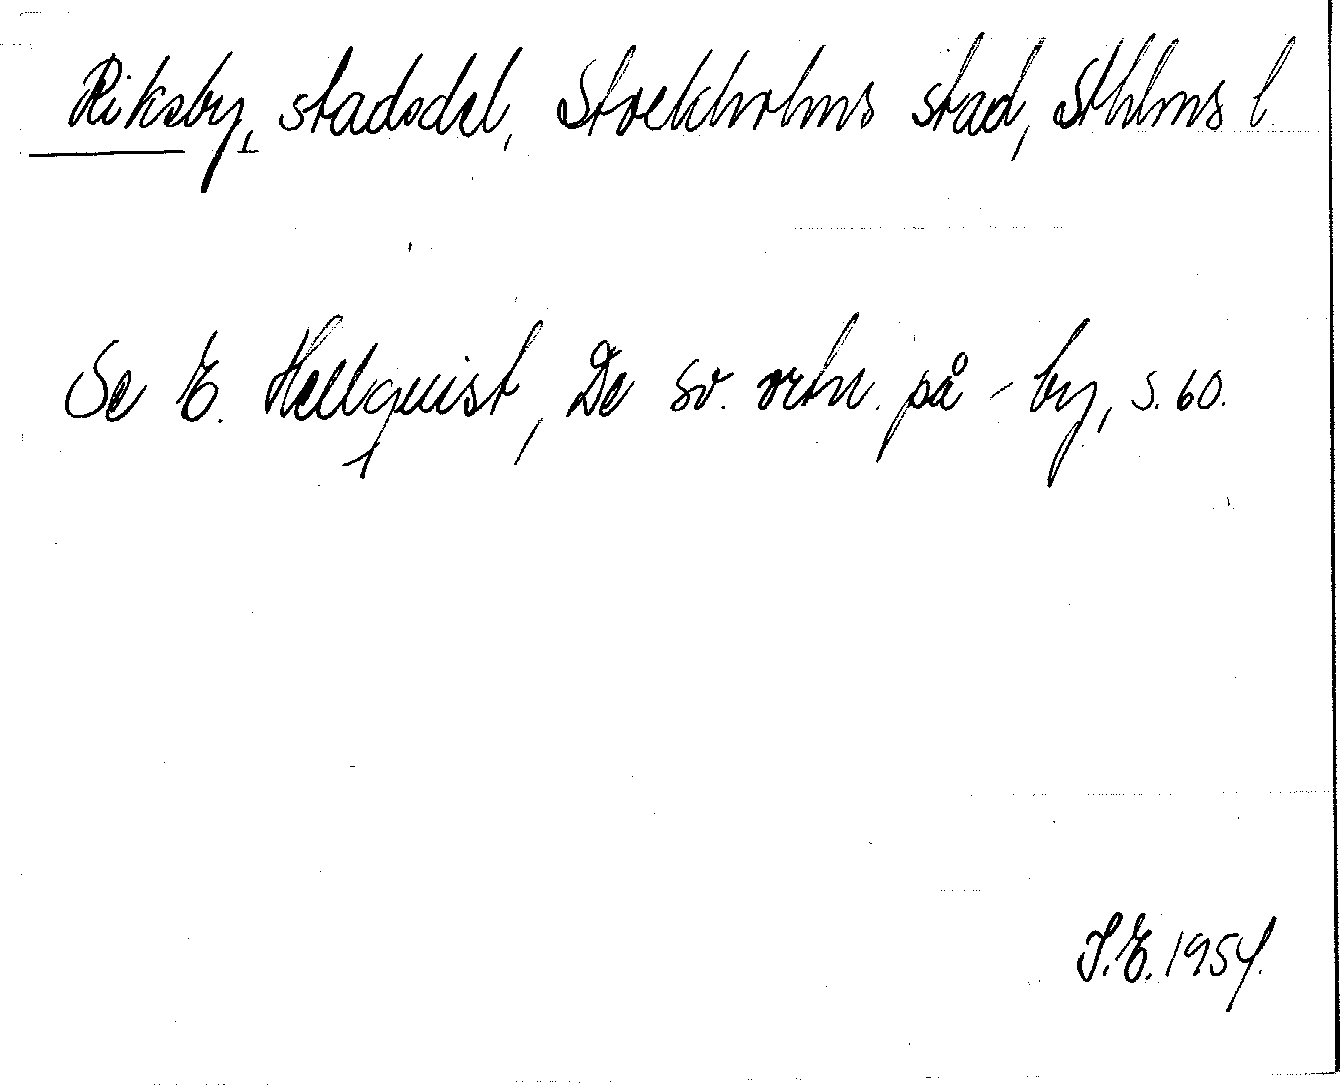 Riksby, stadsdel, Stockholms stad, Sthlms l
Se E. Hellquist, De sv. ortn. på -by, s. 60.
S.E. 1954.